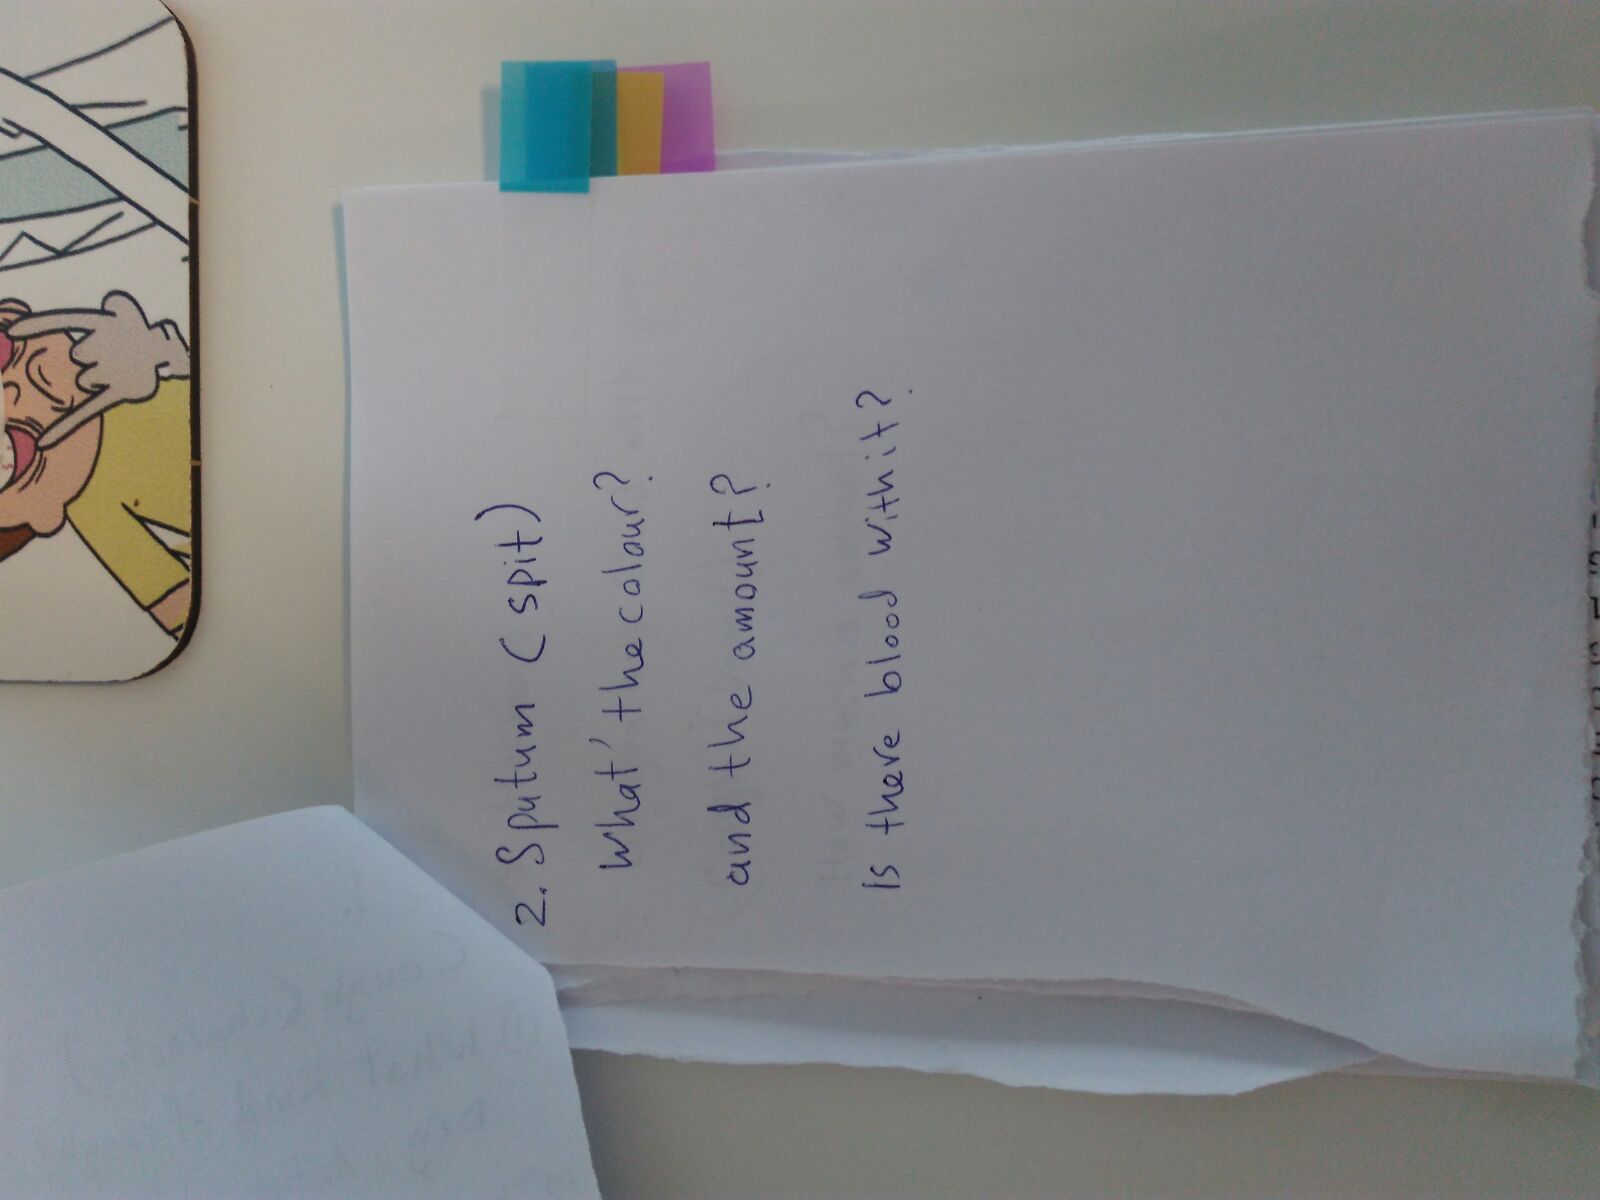 2. Sputum (spit)
What' the colour?
and the amount?
Is there blood with it?